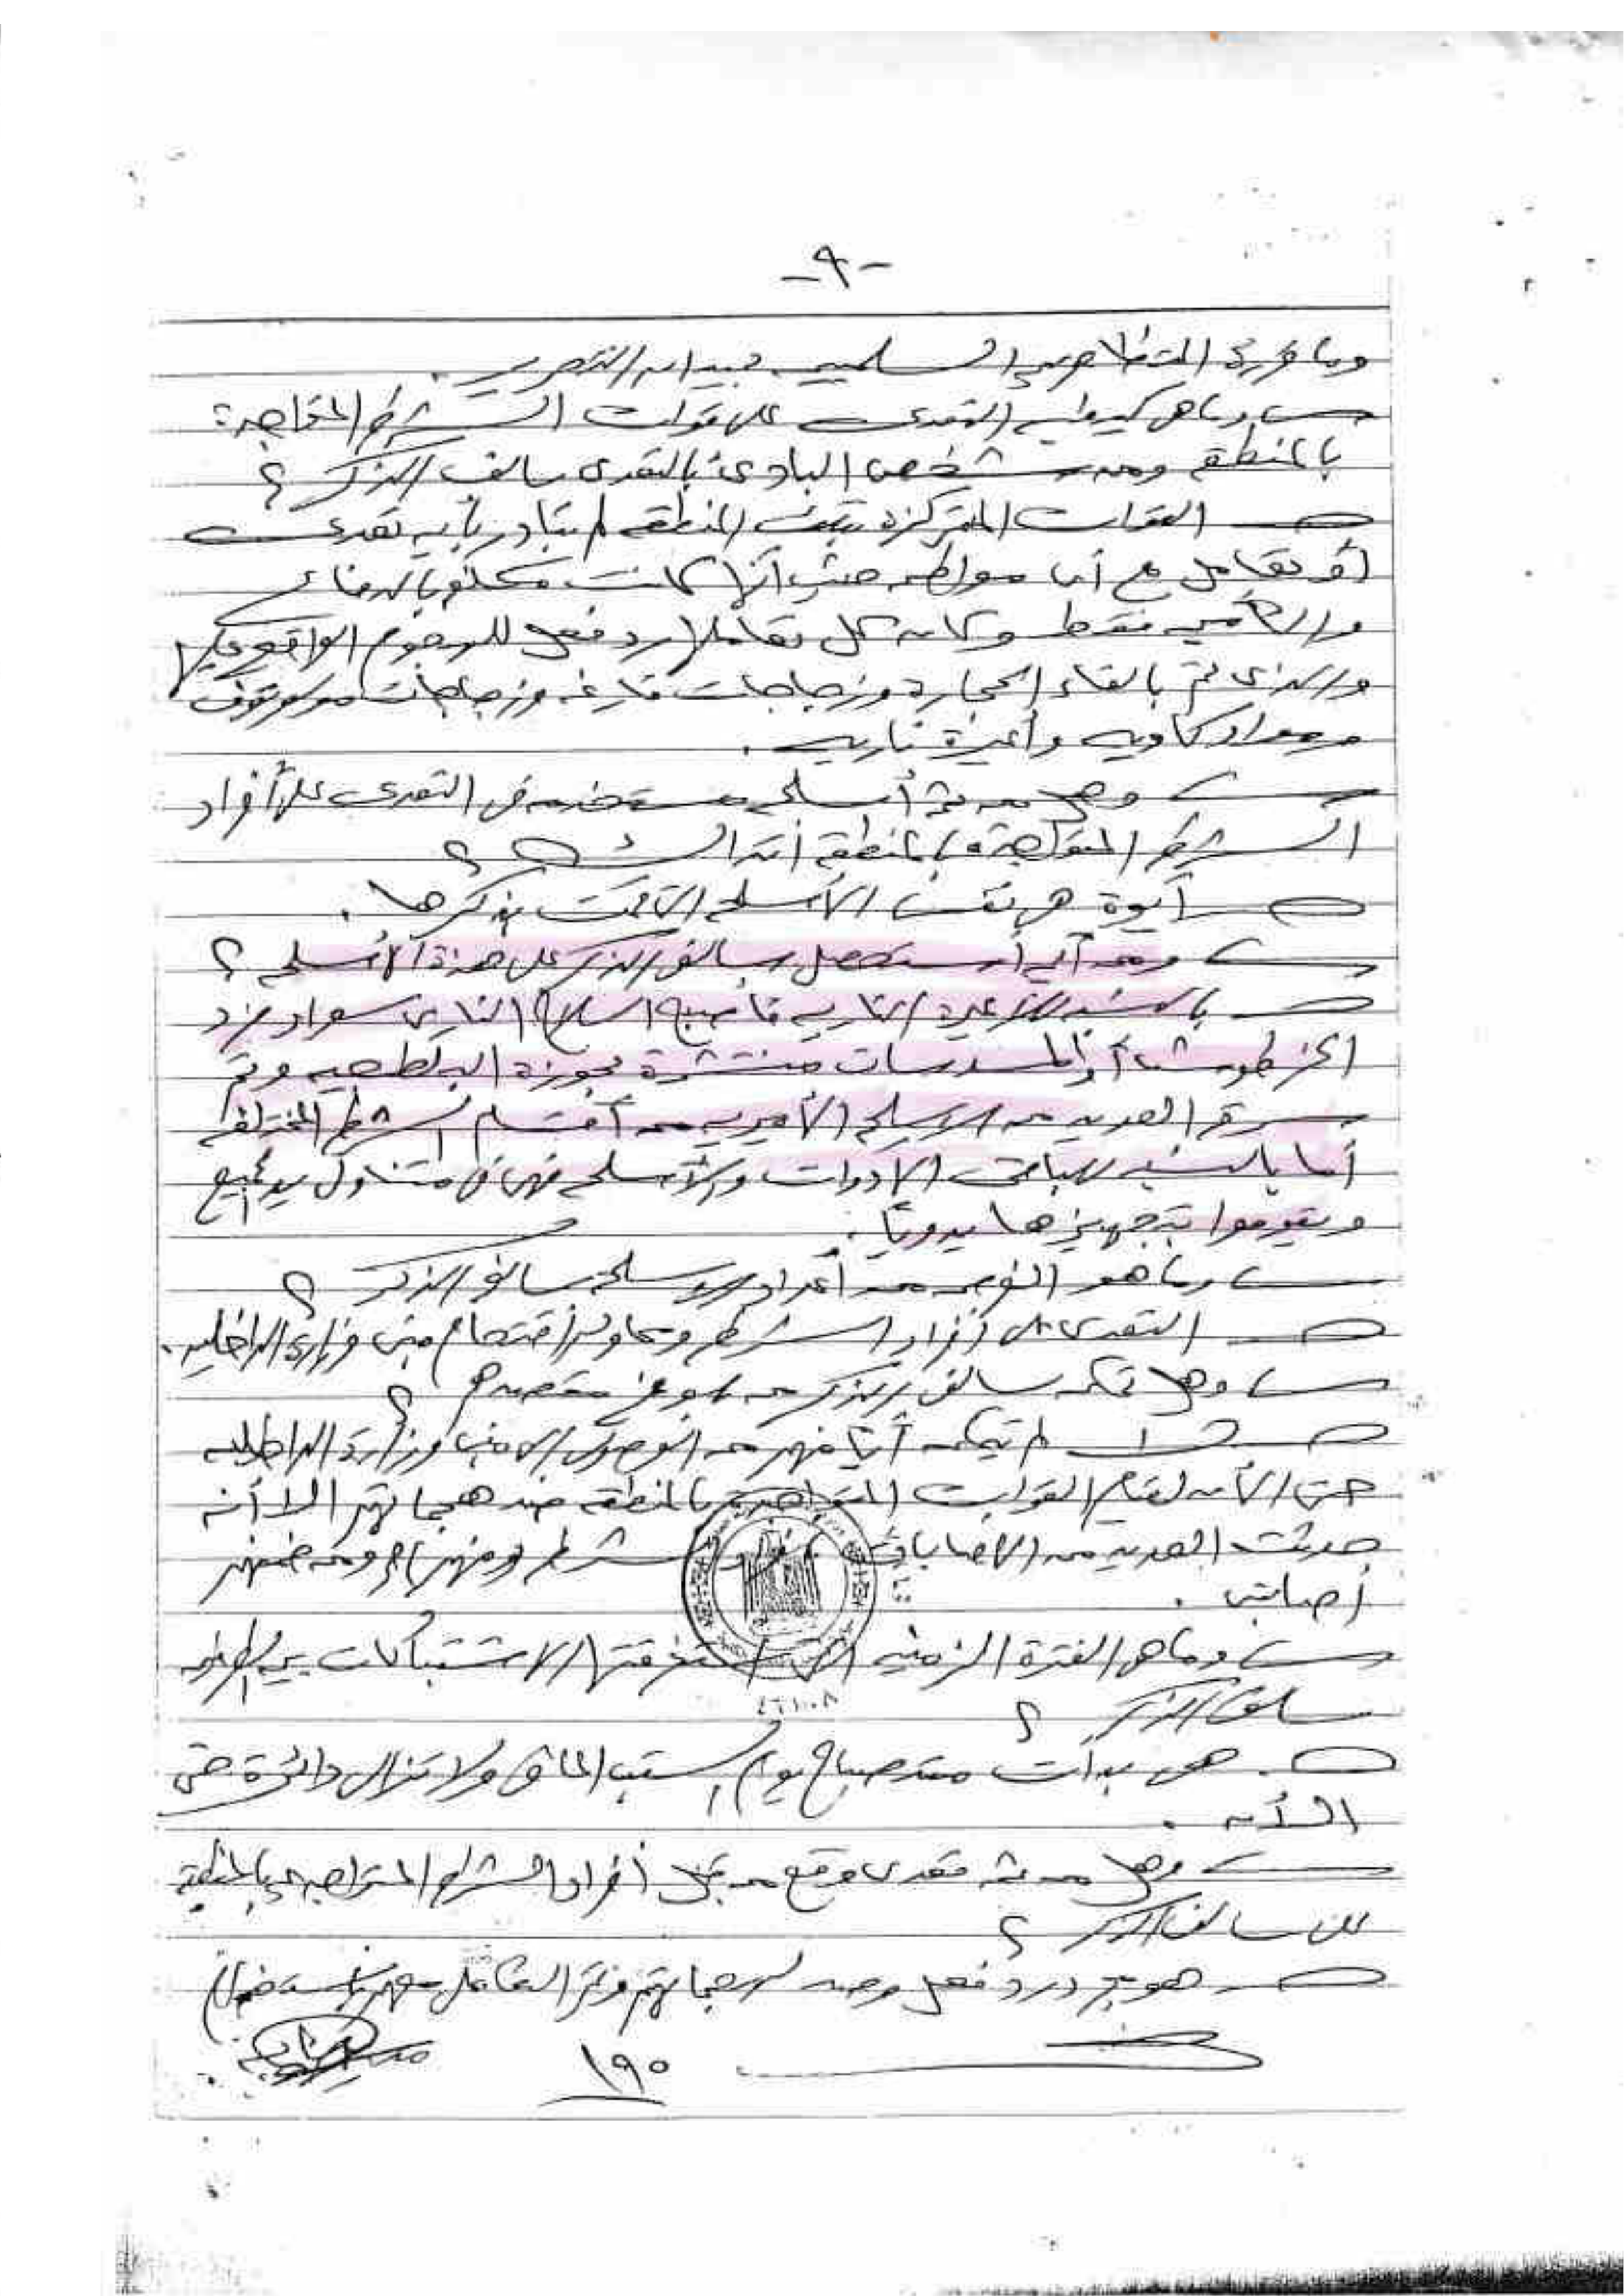 -٩-
وما قررة المتظاهرين السلميين بميدان التحرير .
س وما هي كيفية التعدي على قوات الشرطة المتواجدة
بالمنطقة ومن شخص البادئ بالتعدي سالف الذكر ؟
ج القوات المتمركزة بتلك المنطقة لم تبادر بأية تعدي
أو تعامل مع أي مواطن حيث أنها كانت مكلفة بالدفاع
والتأمين فقط وكان كل تعاملها رد فعل للهجوم الواقع عليها
والذي تم بالقاء الحجارة وزجاجات فارغة وزجاجات مولوتوف
ومواد كاوية وأعيرة نارية .
س وهل من ثمة أسلحة مستخدمة في التعدي على أفراد
الشرطة المتواجدة بالمنطقة آنذاك ؟
ج أيوة هي نفس الأسلحة التي قمت بذكرها .
س ومن أين أستحصل سالف الذكر على هذة الأسلحة ؟
ج بالنسبة للأعيرة النارية فأصبح السلاح الناري سواء فرد
الخرطوش أو المسدسات منتشرة بحوزة البلطجية وتم
سرقة العديد من الاسلحة الأميرية من أقسام الشرطة المختلفة
أما بالنسبة لباقي الادوات والأسلحة فهي في متناول يد الجميع
ويقوموا بتجهيزها يدوياً .
س وما هو الغرض من أعداد الاسلحة سالفة الذكر ؟
ج التعدي على أفراد الشرطة ومحاولة اقتحام مبنى وزارة الداخلية .
س وهل تمكن سالف الذكر من بلوغ مقصدهم ؟
ج لا لم يتمكن أياً منهم من الوصول إلى مبنى وزارة الداخلية
حتى الأن لقيام القوات المتواجدة بالمنطقة بصد هجماتهم الا أنه
حدثت العديد من الاصابات بأفراد الشرطة ومنهم ومن ضمنهم
أصابتي .
س وما هي الفترة الزمنية التي استغرقتها الاشتباكات بين الطرفين
سالف الذكر ؟
ج هي بدأت منذ صباح يوم السبت الماضي ولا تزال دائرة حتى
الأن .
س وهل من ثمة تعدي وقع من قبل أفراد الشرطة المتواجدين بالمنطقة
على سالف الذكر ؟
ج هو مجرد رد فعل وصد لهجماتهم وتم التعامل معهم باستخدام
١٩٠